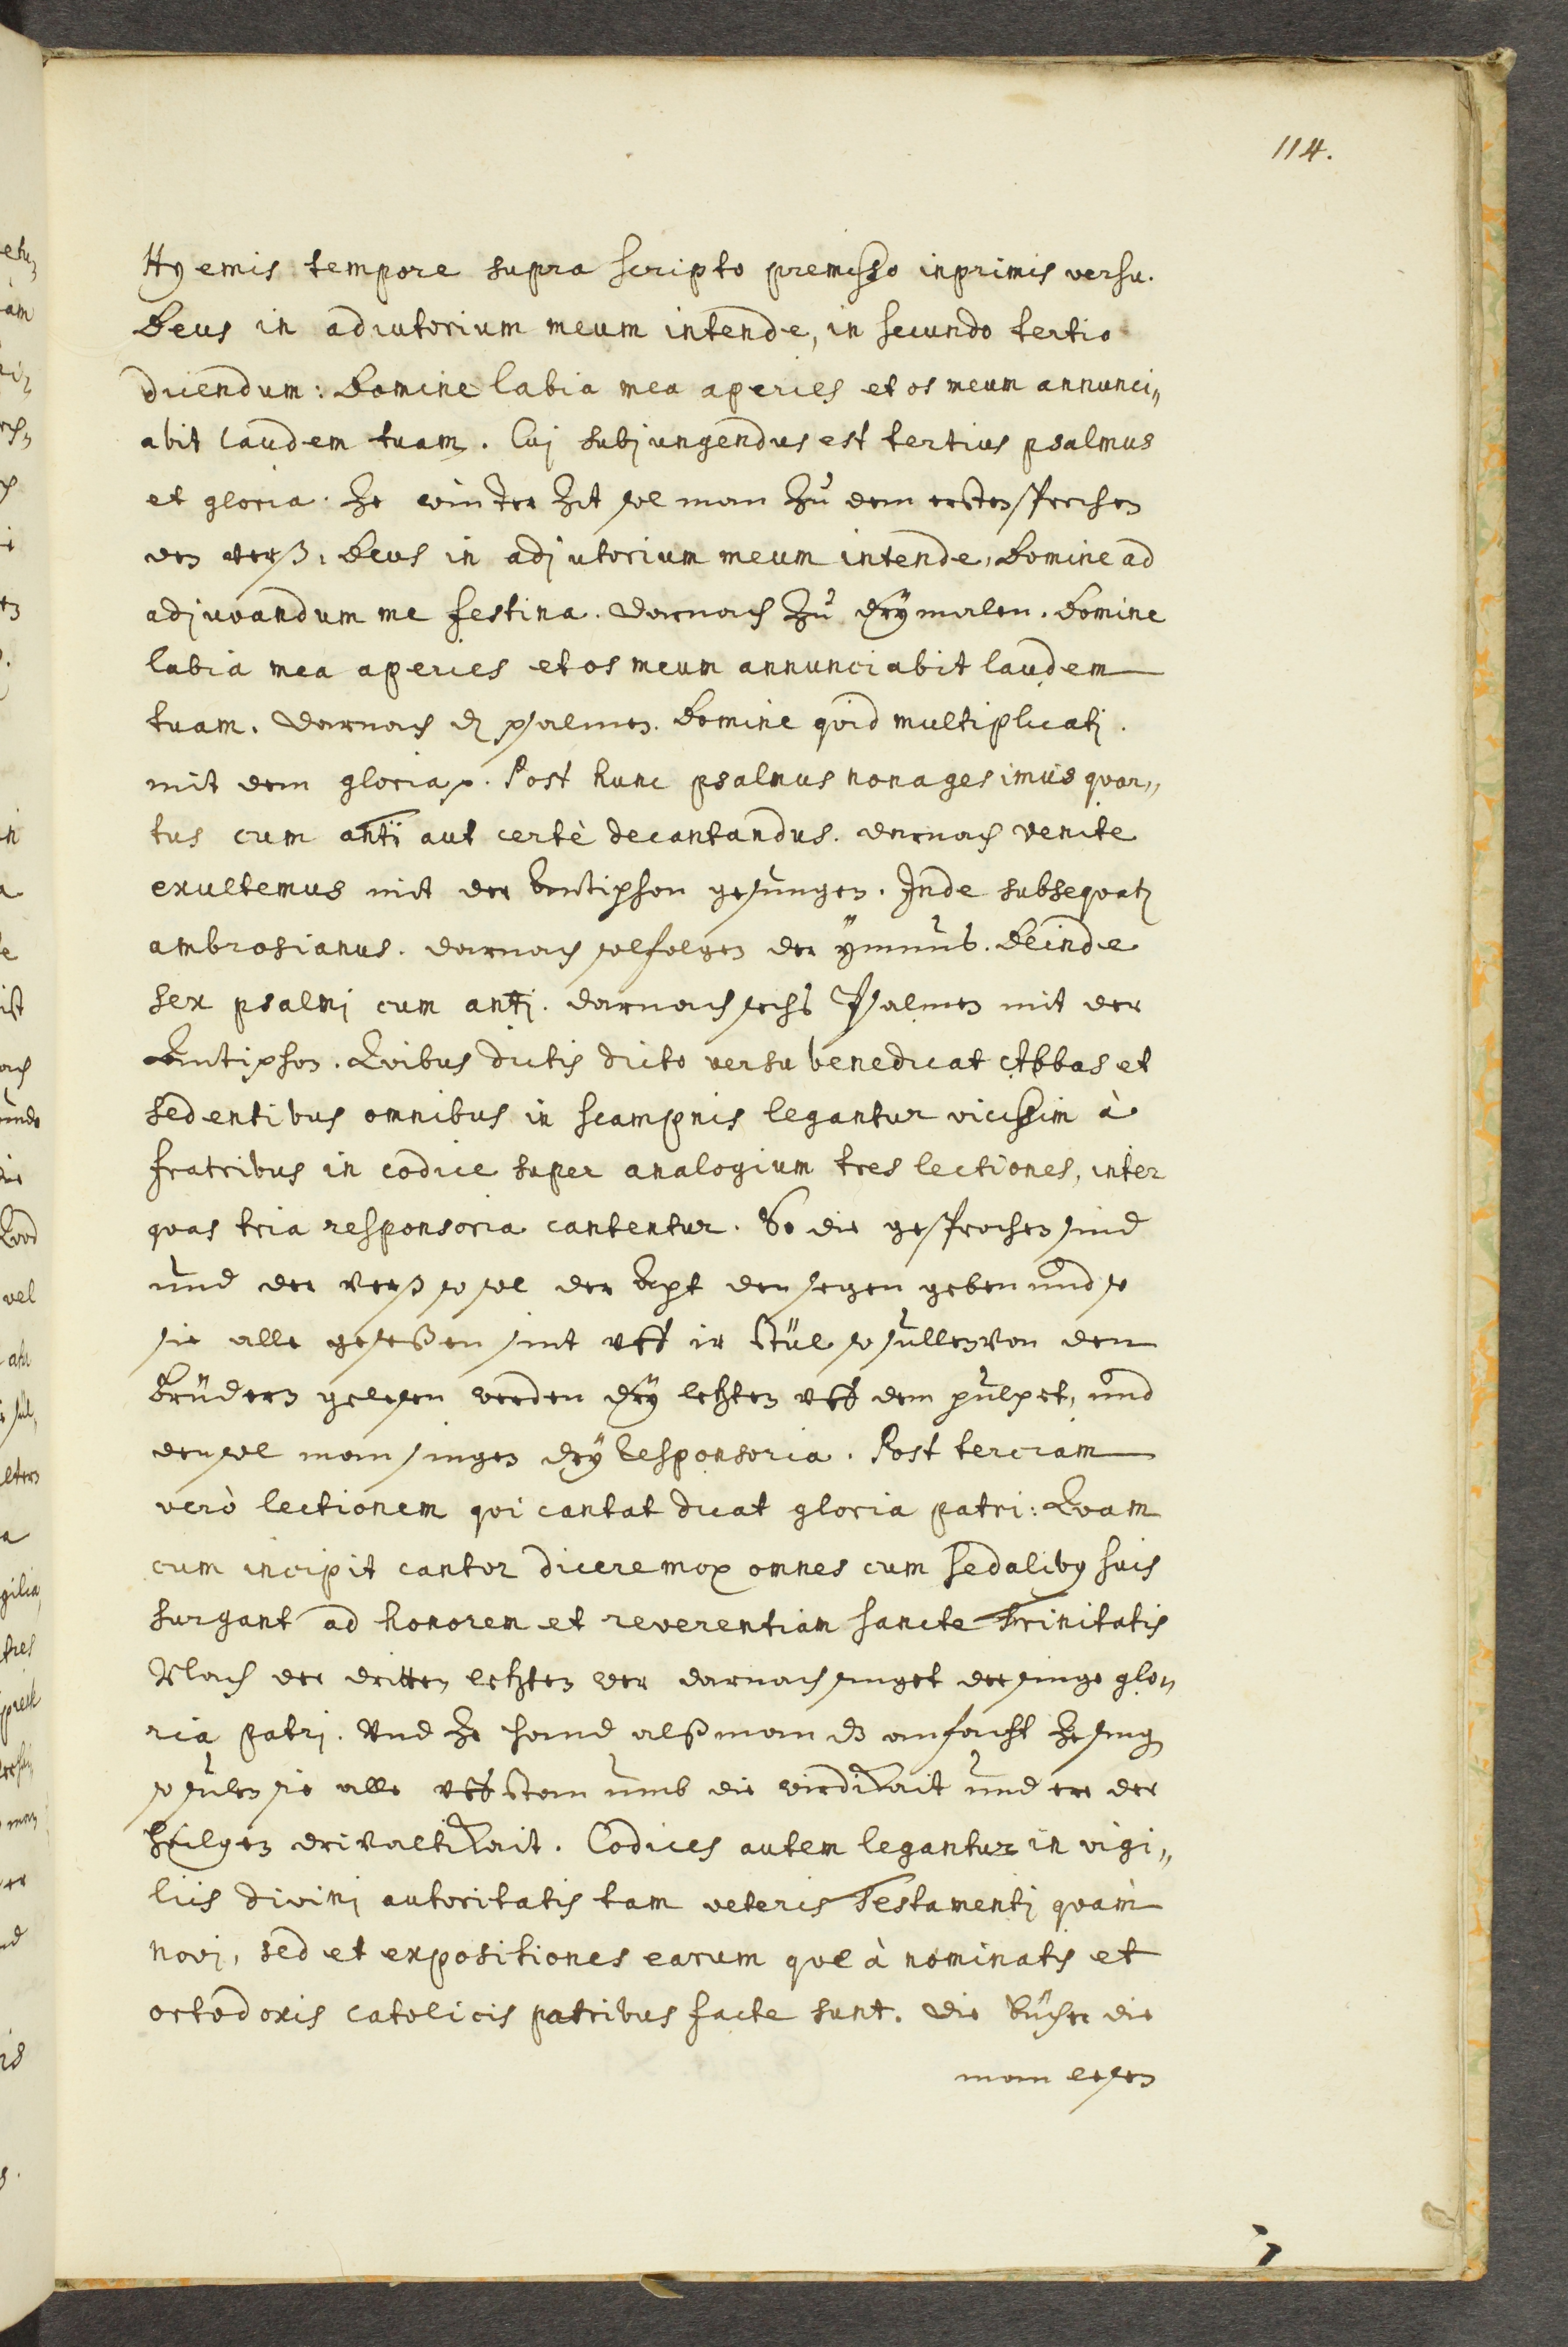 114.
Hyemis tempore supra scripto premisso inprimis versu.
Deus in adiutorium meum intende, in secundo tertio
dicendum: Domine labia mea aperies et os meum annunci„
abit laudem tuam. Cuj subjungendus est tertius psalmus
et gloria. Ze winter Zit sol man Zu dem ersten sprechen
den verß: Deus in adjutorium meum intende, Domine ad
adjuvandum me festina. Darnach Zu drÿmalen. Domine
labia mea aperies et os meum annunciabit laudem
tuam. Darnach dz psalmen. Domine quid multiplicatj.
mit dem gloria p. Post hunc psalmus nonagesimus quar„
tus cum anti aut certè decantandus. Darnach venite
exultemus mit der Antiphon gesungen. Inde subsequatz
ambrosianus. Darnach sol folgen der ÿmnus. Deinde
sex psalmj cum antj. Darnach sechs Psalmen mit der
Antiphon. Quibus dictis dicto versu benedicat Abbas et
sedentibus omnibus in scampnis legantur vicissim à
fratribus in codice super analogium tres lectiones, inter
quas tria responsoria cantentur. So die gesprochen sind
und der Verß so sol der Apt den segen geben und so
sie alle gesessen sint uff ir Stül so sullen von den
Brüdern gelesen werden drÿ letzten uff dem pulpet, und
den sol man singen drÿ Responsoria. Post terciam
verò lectionem qui cantat dicat gloria patri: Quam
cum incipit cantor dicere mox omnes cum sedaliby suis
surgant ad honorem et reverentiam sancte Trinitatis
Nach der dritten letzten wer darnach singet der singe glo„
ria patrj. Und ze hand alß man dz anfacht ze sing
so sulen sie alle uff stan umb die wirdikait und ere der
heilgen drivaltikait. Codices autem legantur in vigi„
liis divinj autoritatis tam veteris Testamentj quàm
novj, sed et expositiones earum que à nominatis et
ortodoxis catolicis patribus facte sunt. Die bücher die
man lesen